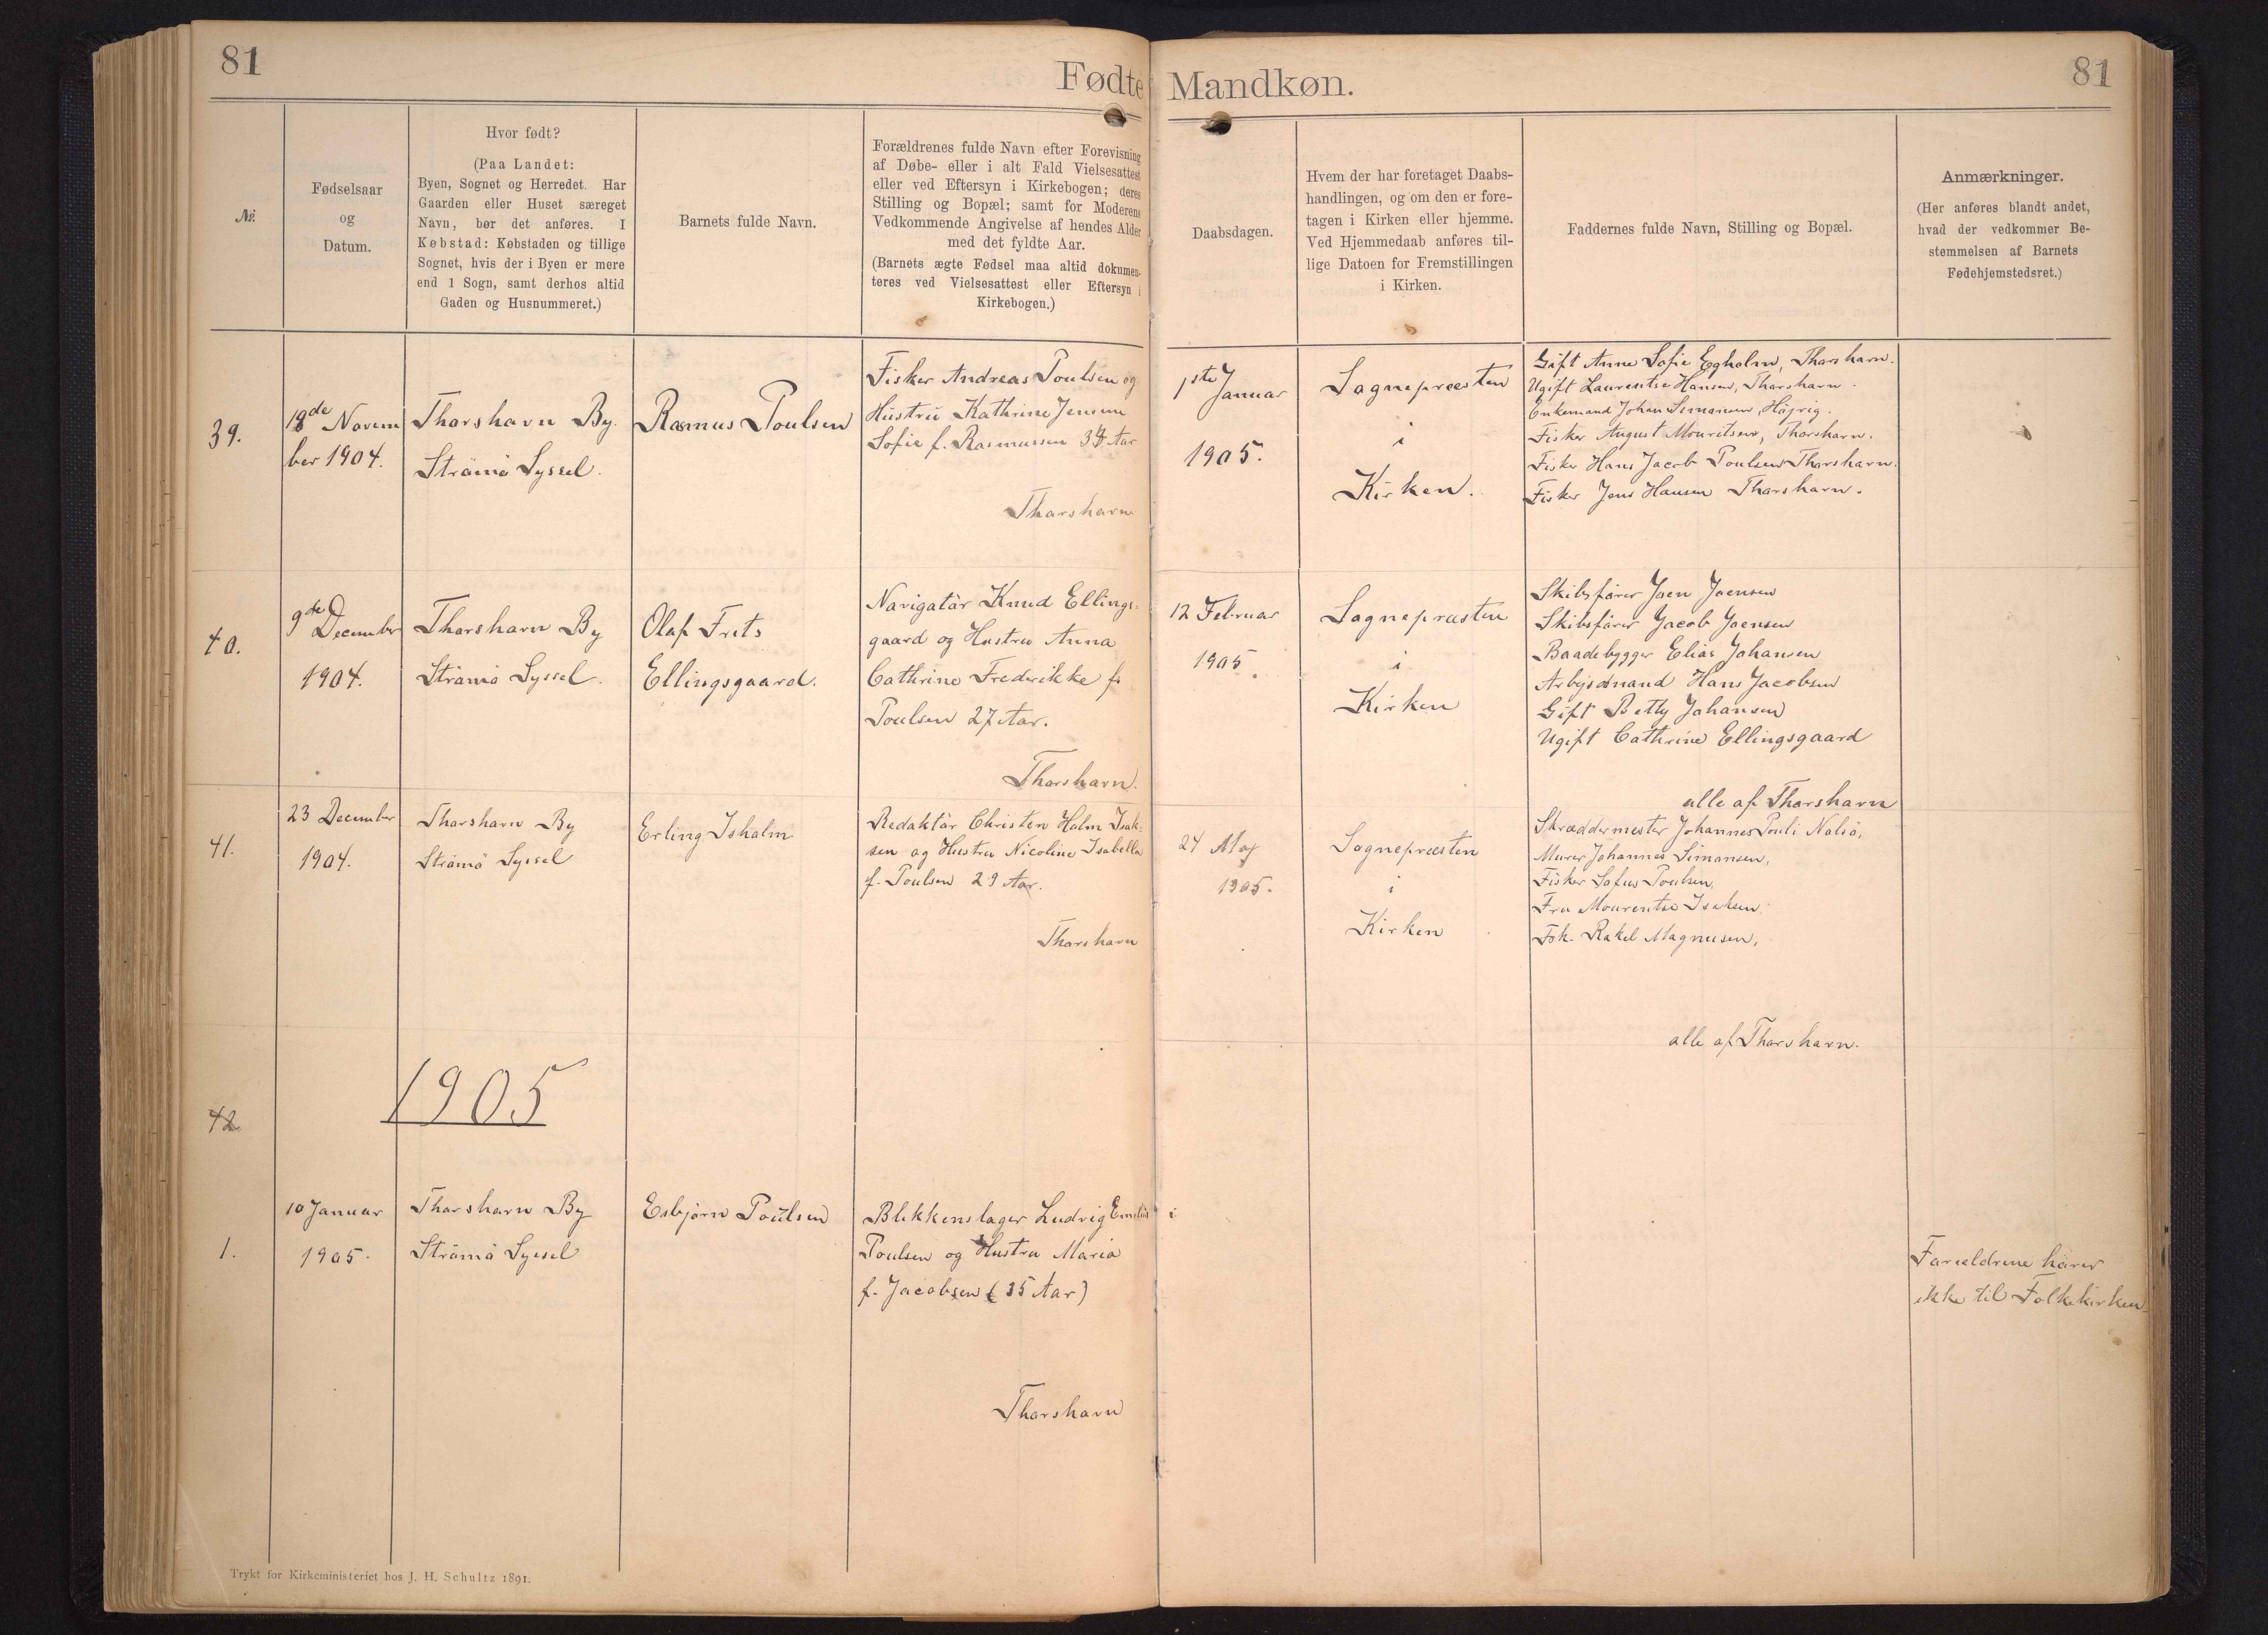 81
Fødte Mandkøn.
81
№.
Fødselsaar
og
Datum.
Hvor født?
(Paa Landet:
Byen, Sognet og Herredet. Har
Gaarden eller Huset særeget
Navn, bør det anføres. I
Købstad: Købstaden og tillige
Sognet, hvis der i Byen er mere
end 1 Sogn, samt derhos altid
Gaden og Husnummeret.)
Barnets fulde Navn.
Forældrenes fulde Navn efter Forevisning
af Døbe- eller i alt Fald Vielsesattest
eller ved Eftersyn i Kirkebogen; deres
Stilling og Bopæl; samt for Moderens
Vedkommende Angivelse af hendes Alder
med det fyldte Aar.
(Barnets ægte Fødsel maa altid dokumen-
teres ved Vielsesattest eller Eftersyn i
Kirkebogen.)
Daabsdagen.
Hvem der har foretaget Daabs-
handlingen, og om den er fore-
tagen i Kirken eller hjemme.
Ved Hjemmedaab anføres til-
lige Datoen for Fremstillingen
i Kirken.
Faddernes fulde Navn, Stilling og Bopæl.
Anmærkninger.
(Her anføres blandt andet,
hvad der vedkommer Be-
stemmelsen af Barnets
Fødehjemstedsret.)
39.
18de Novem
ber 1904.
Thorshavn By.
Strömö Syssel.
Rasmus Poulsen
Fisker Andreas Poulsen og
Hustru Kathrine Jensine
Sofie f. Rasmussen Aar
Thorshavn
1ste Januar
1905.
Sognepræsten
i
Kirken.
Gift Anne Sofie Egholm, Thorshavn.
Ugift Laurentse Hansen, Thorshavn.
Enkemand Johan Simonsen, Höjvig.
Fisker August Mouritsen, Thorshavn.
Fisker Hans Jacob Poulsen Thorshavn.
Fisker Jens Hansen Thorshavn.
40.
9de December
1904.
Thorshavn By
Strömö Syssel.
Olaf Frits
Ellingsgaard.
Navigatör Knud Ellings-
gaard og Hustru Anna
Cathrine Frederikke f.
Poulsen 27 Aar.
Thorshavn.
12 Februar
1905.
Sognepræsten
i
Kirken
Skibsförer Joen Joensen
Skibsförer Jacob Joensen
Baadebygger Elias Johansen
Arbejdsmand Hans Jacobsen
Gift Betty Johansen
Ugift Cathrine Ellingsgaard
alle af Thorshavn
41.
23 December
1904.
Thorshavn By
Strömö Syssel
Erling Isholm
Redaktör Christen Holm Isak-
sen og Hustru Nicoline Isabella
f. Poulsen 29 Aar.
Thorshavn
24 Maj
1905.
Sognepræsten
i
Kirken
Skræddermester Johannes Pouli Nolsö,
Murer Johannes Simonsen,
Fisker Sofus Poulsen,
Fru Mourentse Isaksen,
Frk. Rakel Magnusen,
alle af Thorshavn.
42.
1905
1.
10 Januar
1905.
Thorshavn By
Strömö Syssel
Esbjörn Poulsen
Blikkenslager Ludvig Emilius i
Poulsen og Hustru Maria
f. Jacobsen (35 Aar)
Thorshavn
Forældrene hörer
ikke til Folkekirken.
Trykt for Kirkeministeriet hos J. H. Schultz 1891.